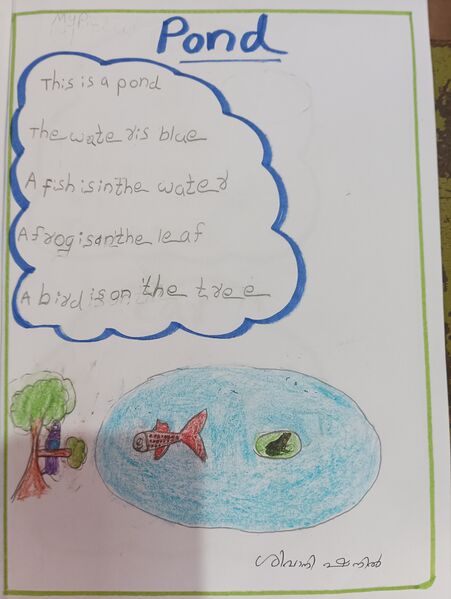 Pond
This is a pond
The water is blue
A fish is in the water
A frog is on the leaf
A bird is on the tree
ശിവാനി